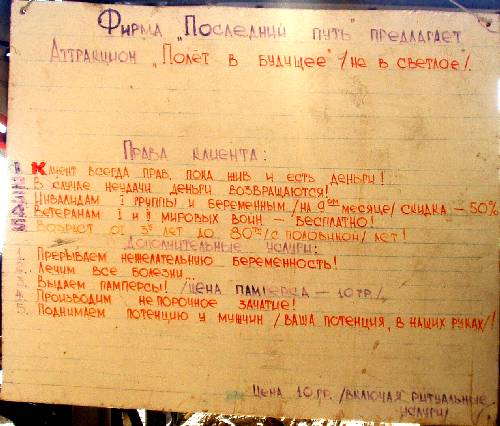 Фирма „Последний путь" предлагает
Аттракцион „Полёт в будущее" /не в светлое/.
Права клиента:
1. Клиент всегда прав, пока жив и есть деньги!
2. В случае неудачи деньги возвращаются!
Инвалидам I группы и беременным /на 9ом месяце/ скидка – 50%
Ветеранам I и II мировых войн – бесплатно!
Возраст от 3х лет до 80ти /с половиной/ лет!
Дополнительные услуги:
1. Прерываем нежелательную беременность!
2. Лечим все болезни...
3. Выдаём памперсы! /цена памперса – 10 гр./
4. Производим непорочное зачатие!
5. Поднимаем потенцию у мужчин /ваша потенция, в наших руках/!
Цена 10 гр. /включая ритуальные
услуги/